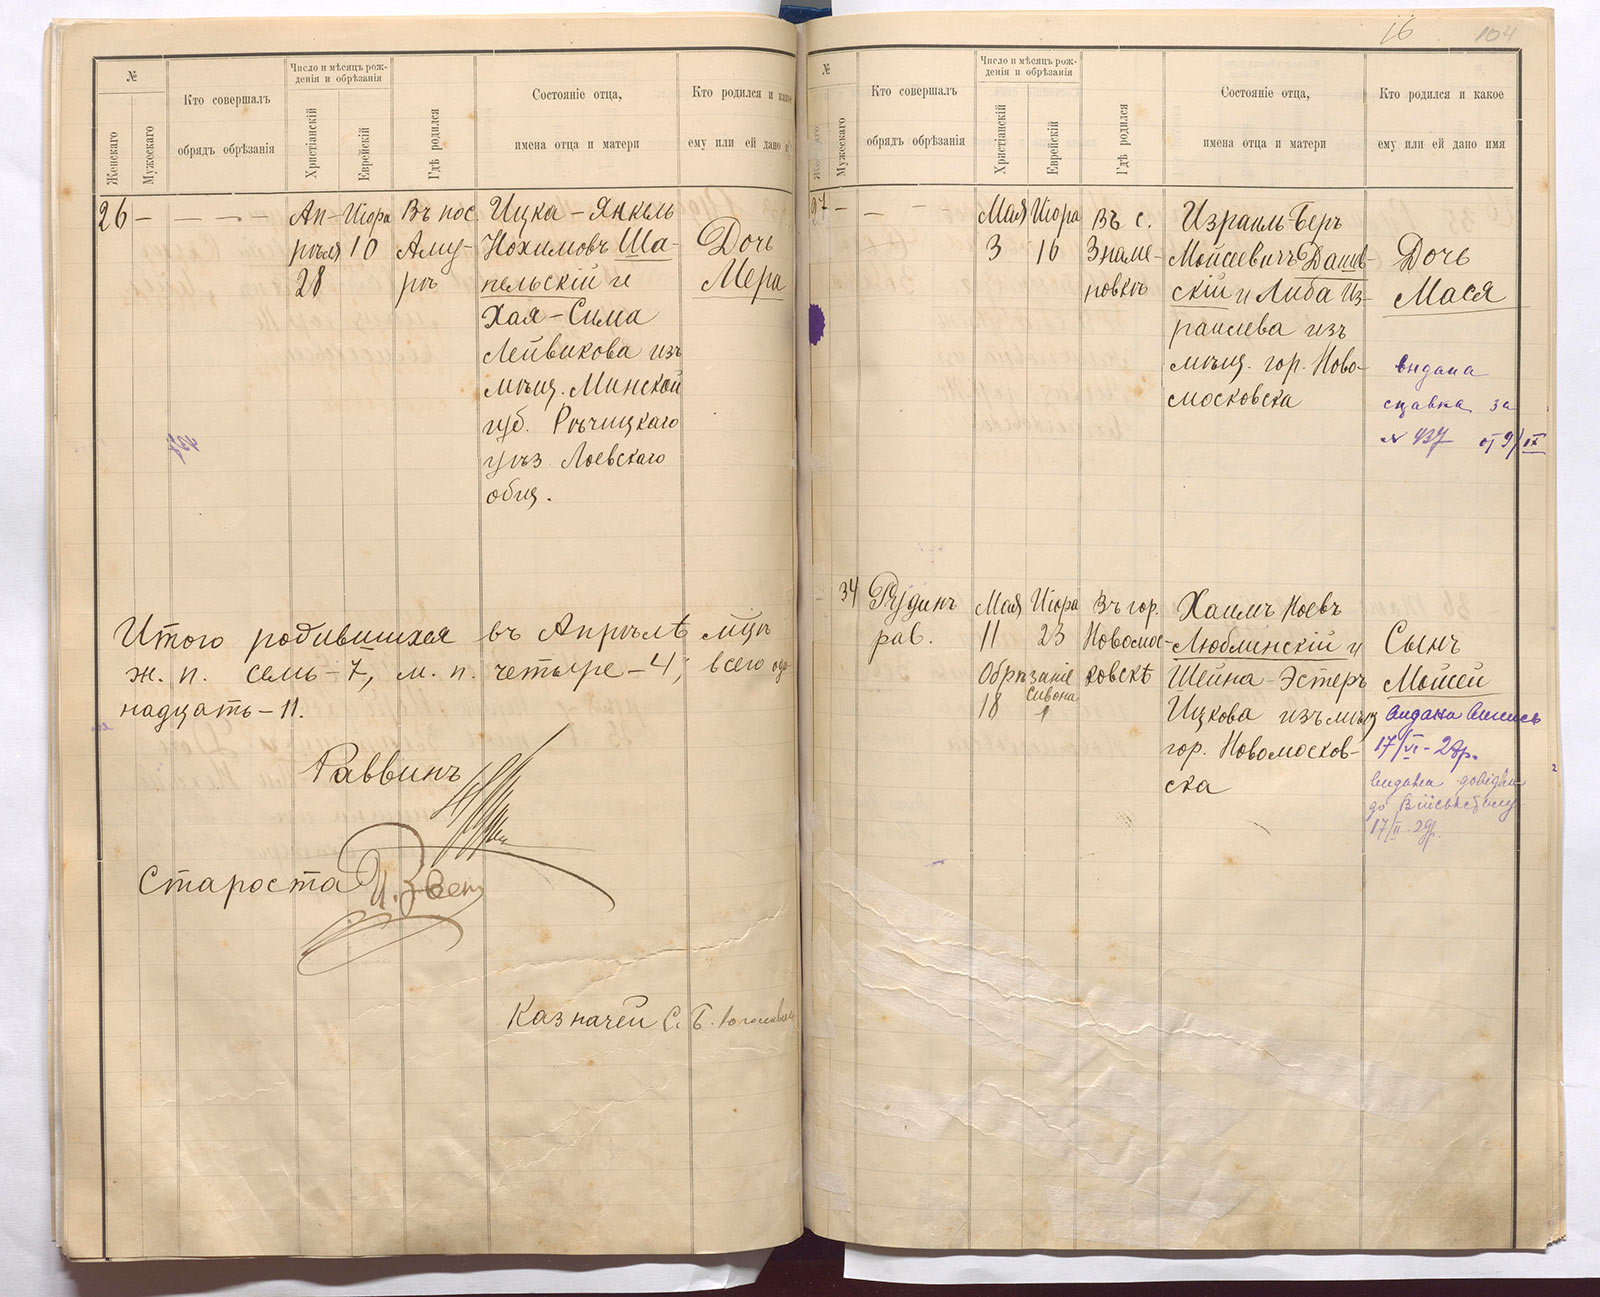 №
Женскаго
Мужескаго
Кто совершалъ
обрядъ обрѣзанія
Число и мѣсяцъ рож-
денія и обрѣзанія
Христіанскій
Еврейскій
Гдѣ родился
Состояніе отца,
имена отца и матери
Кто родился и како
ему или ей дано
26 — — — — —
Ап-
рѣля
28
Иіора
10
Въ пос.
Аму-
рѣ
Ицка - Янкель
Нохимовъ Ша-
пельскій и
Хая - Сима
Лейвикова изъ
мѣщ. Минской
губ. Рѣчицкаго
уѣз. Лоевскаго
общ.
Дочь
Мера
437
Итого родившихся въ Апрѣлѣ мцѣ
ж. п. семь - 7, м. п. четыре - 4, всего оди-
надцать - 11.
Раввинъ
Староста
Казначей С. Б.
16
104
№
Мужескаго
Кто совершалъ
обрядъ обрѣзанія
Число и мѣсяцъ рож-
денія и обрѣзанія
Христіанскій
Еврейскій
Гдѣ родился
Состояніе отца,
имена отца и матери
Кто родился и какое
ему или ей дано имя
27 — — — —
Мая
3
Иіора
16
Въ с.
Знаме-
новкѣ
Израиль Беръ
Мойсеевичъ Дашев-
скій и Либа Из-
раилева изъ
мѣщ. гор. Ново-
московска
Дочь
Мася
видана
справка за
№ 437 от 9/IX
34
Рудинъ
рав.
Мая
11
Обрѣзаніе
18
Иіора
23
Сивона
1
Въ гор.
Новомос-
ковскѣ
Хаимъ Ноевъ
Люблинскій и
Шейна - Эстеръ
Ицкова изъ мѣщ
гор. Новомосков-
ска
Сынъ
Мойсей
видана виписъ
17/VI - 29р.
видана довідка
до
17/II - 29р.